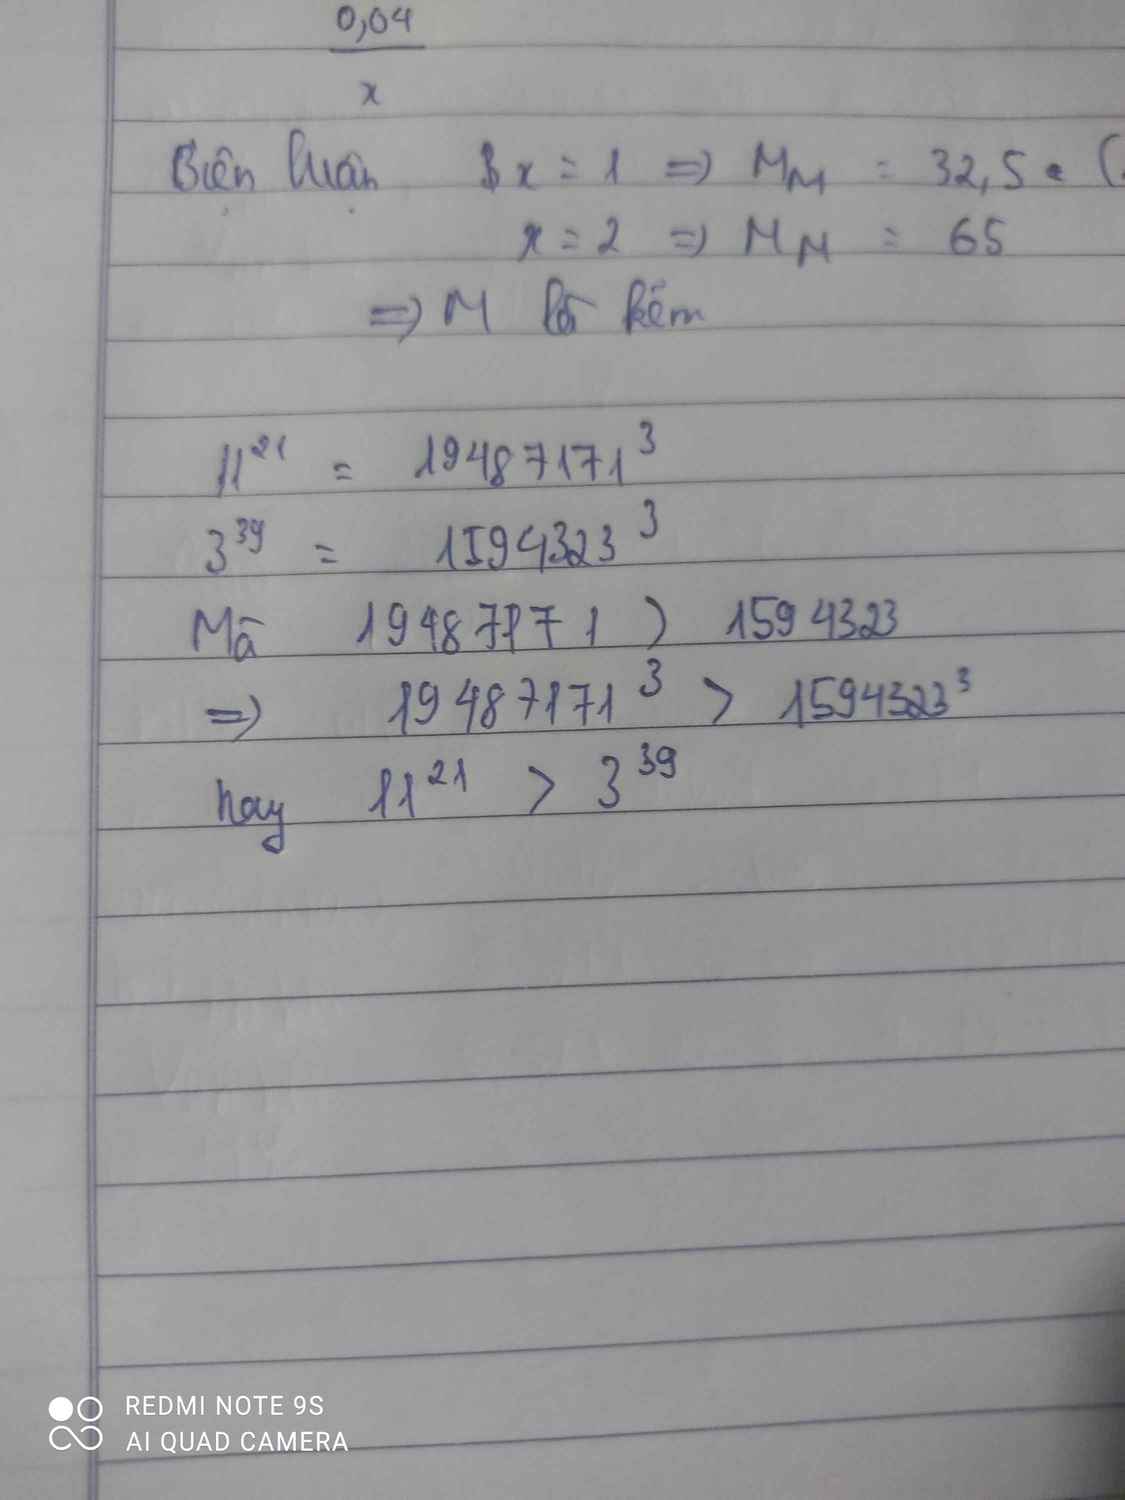 0,04
x
Biện luận x = 1 => M_M = 32,5 (
x = 2 => M_M = 65
=> M là kẽm
11^21 = 19487171^3
3^39 = 1594323^3
Mà 19487171 > 1594323
=> 19487171^3 > 1594323^3
hay 11^21 > 3^39
REDMI NOTE 9S
AI QUAD CAMERA